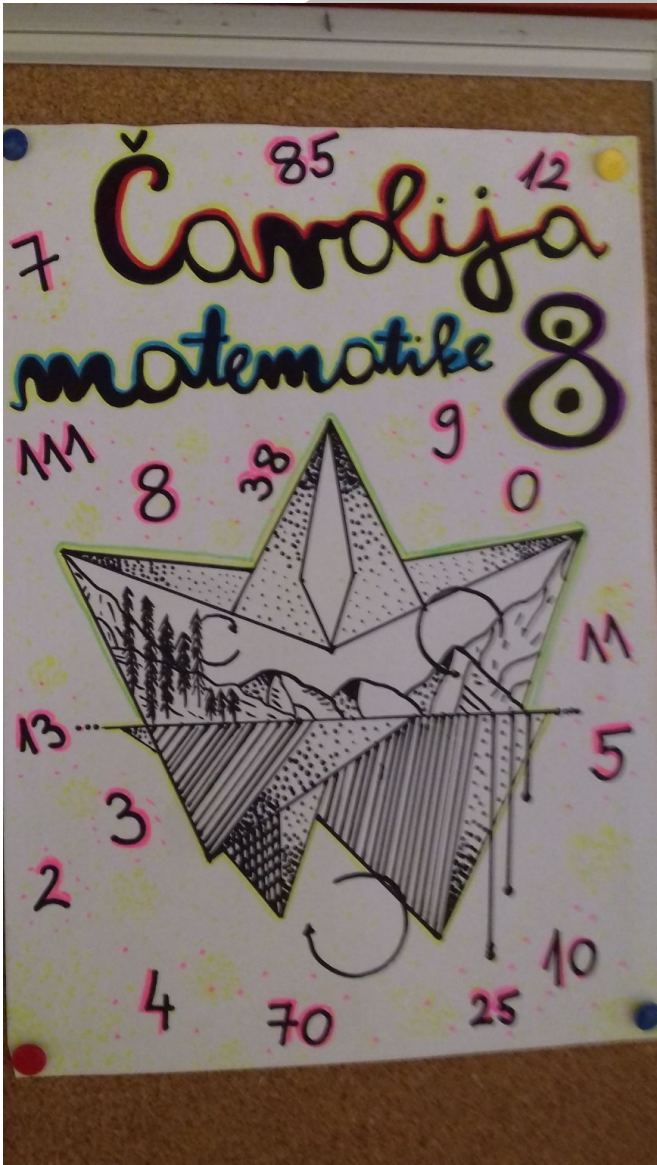 85
12
Čarolija
7
matematike 8
111
8
38
9
0
11
13
5
3
2
10
4
70
25